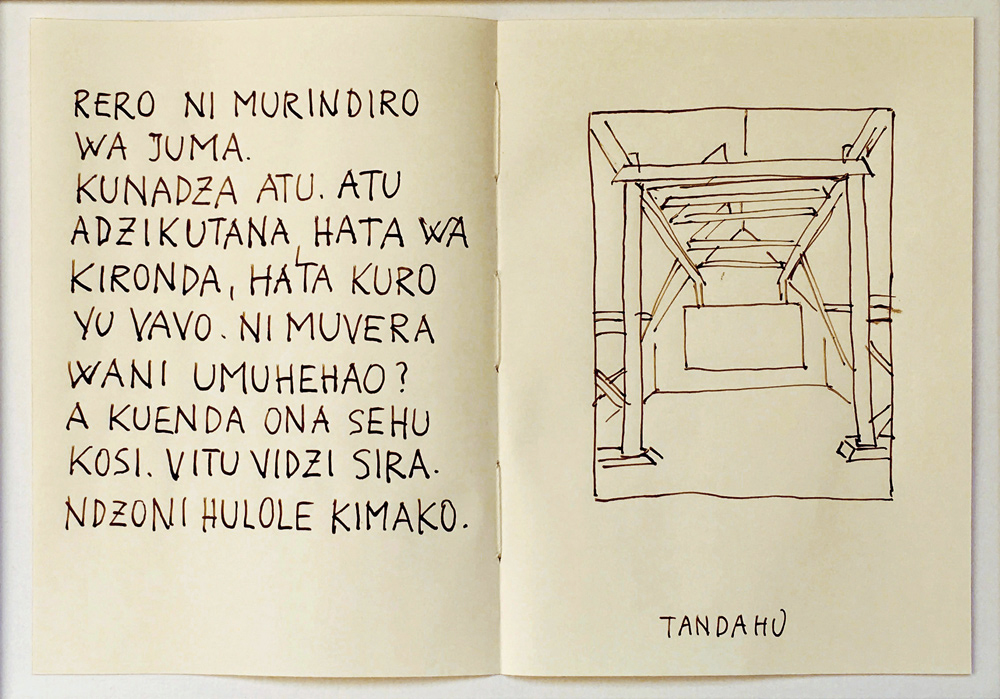 RERO NI MURINDIRO
WA JUMA.
KUNADZA ATU. ATU
ADZIKUTANA, HATA WA
KIRONDA, HATA KURO
YU VAVO. NI MUVERA
WANI UMUHEHAO?
A KUENDA ONA SEHU
KOSI. VITU VIDZI SIRA.
NDZONI HULOLE KIMAKO.
TANDAHU